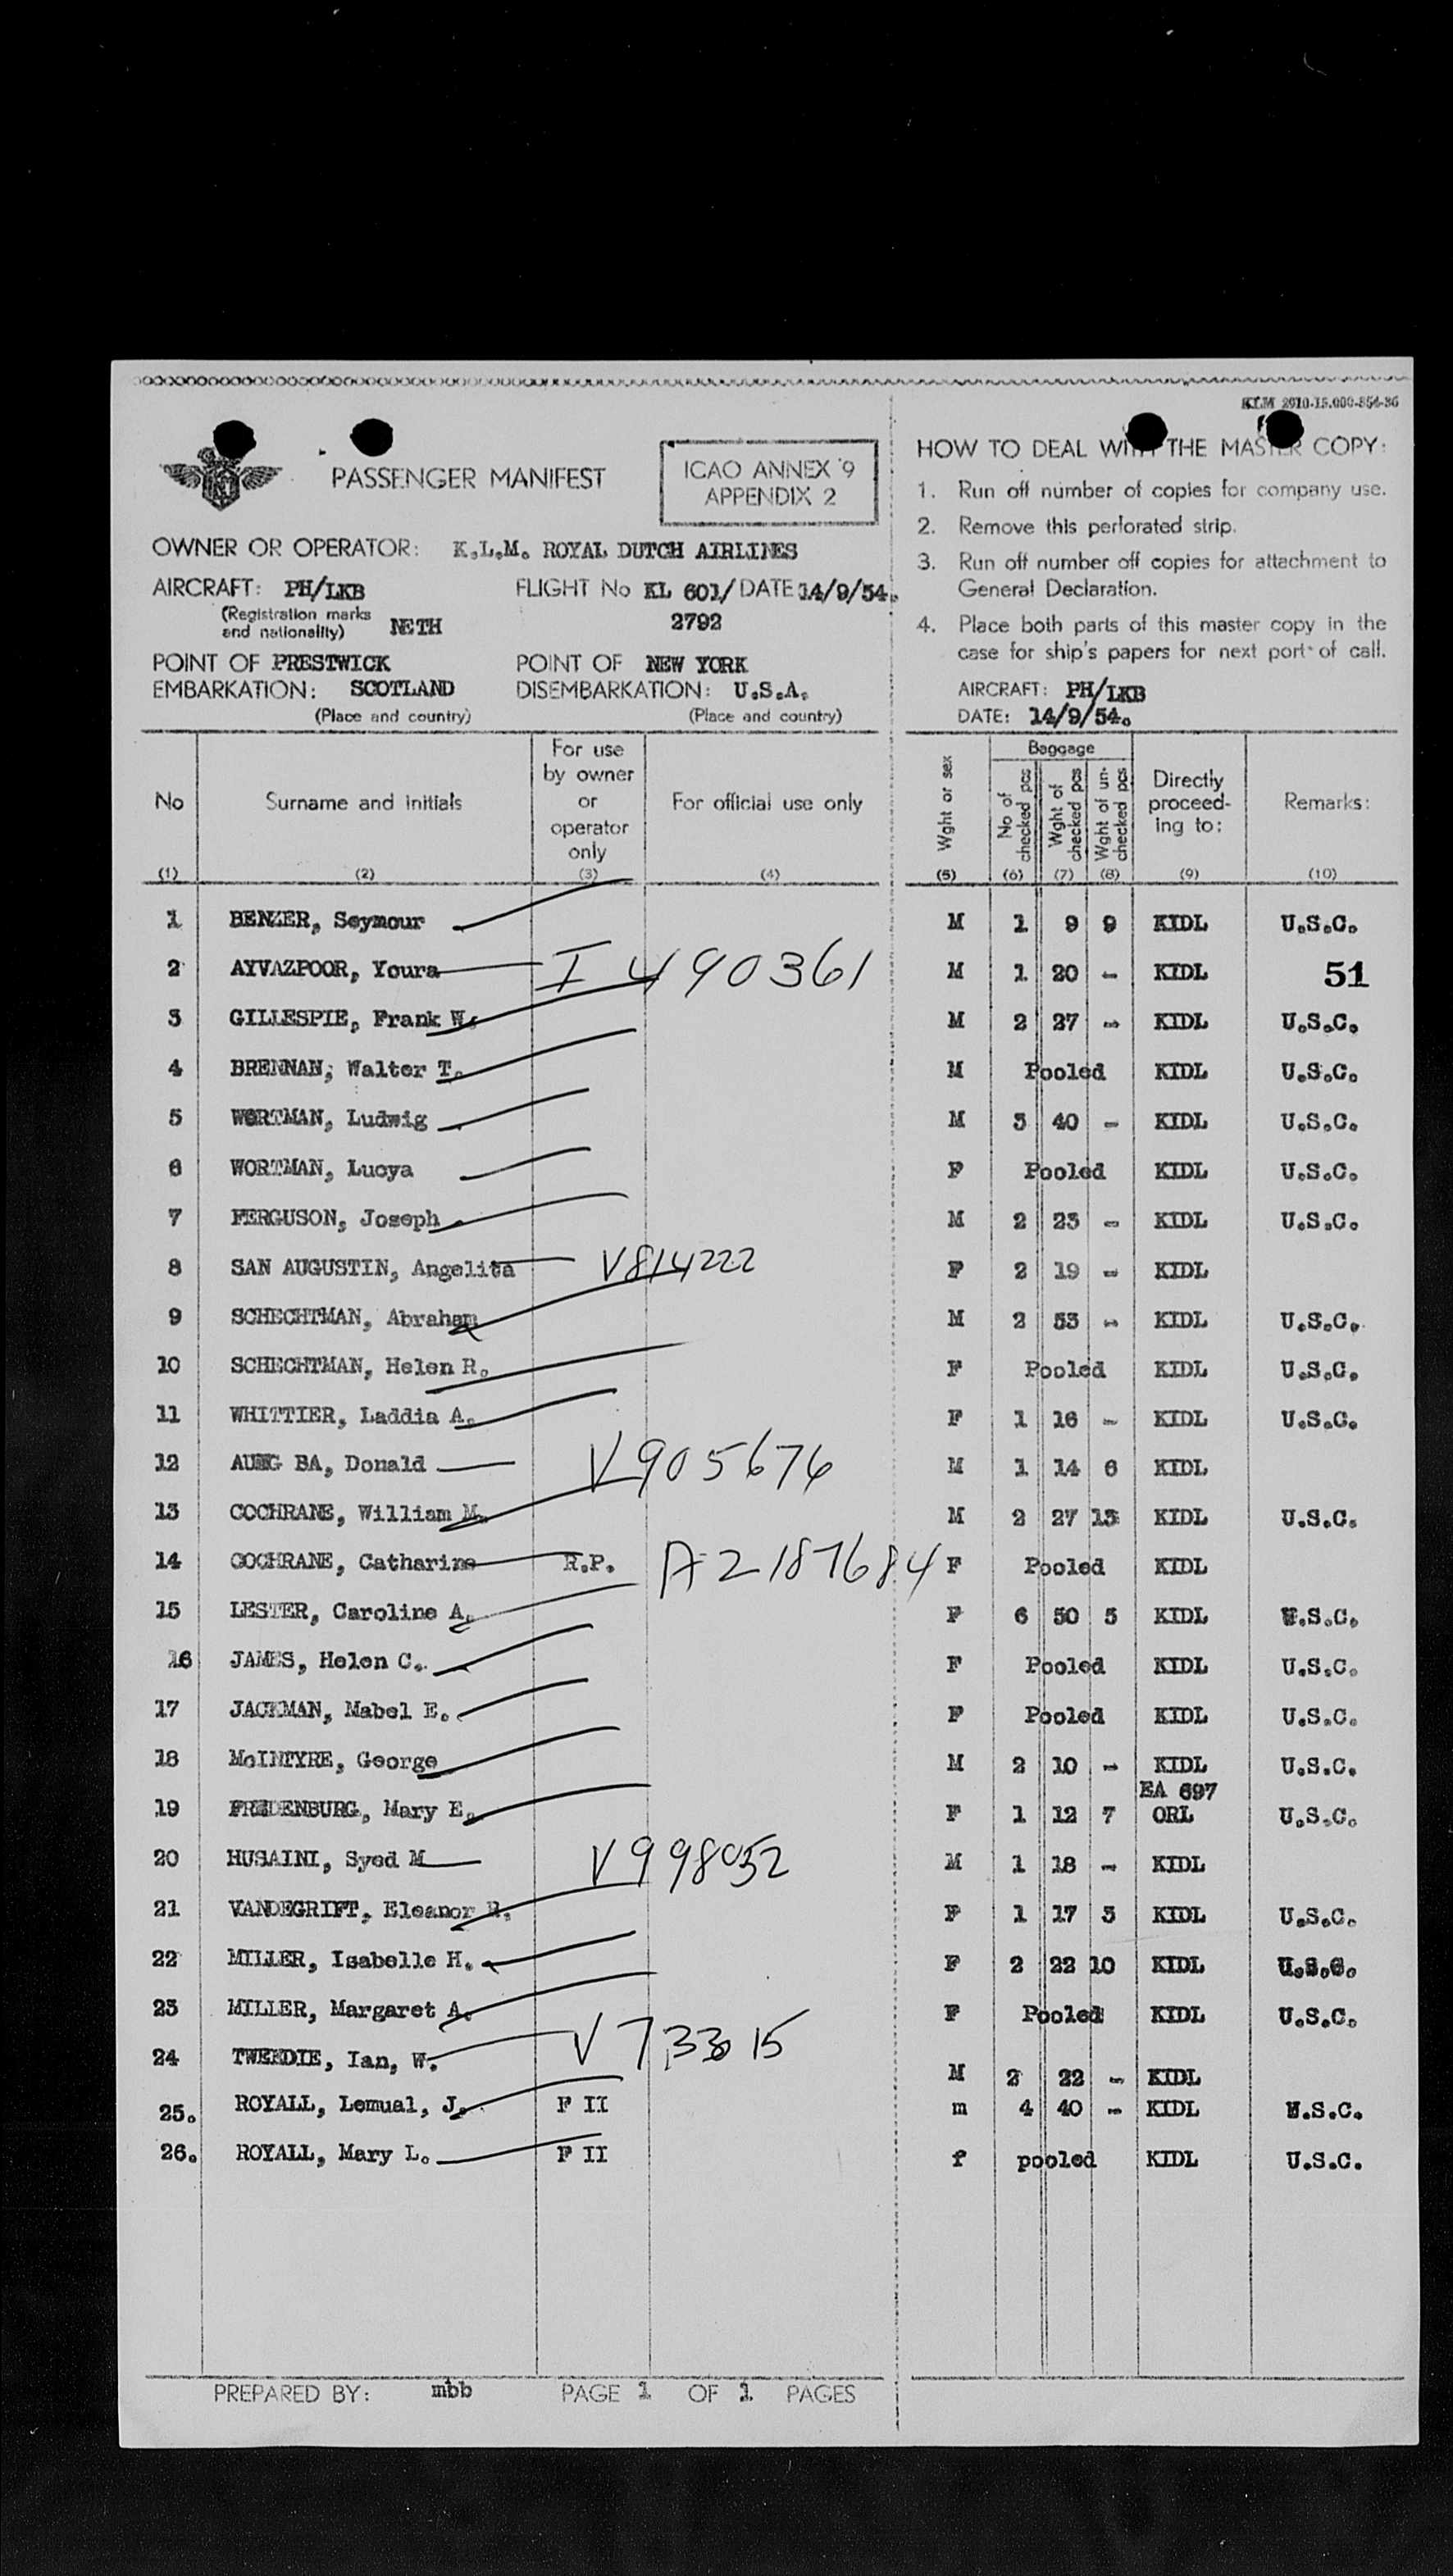 KLM 2910-15.000-854-86
PASSENGER MANIFEST
ICAO ANNEX 9
APPENDIX 2
OWNER OR OPERATOR: K.L.M. ROYAL DUTCH AIRLINES
AIRCRAFT: PH/LKB FLIGHT No KL 601/ DATE 14/9/54.
(Registration marks and nationality) NETH 2792
POINT OF PRESTWICK POINT OF NEW YORK
EMBARKATION: SCOTLAND DISEMBARKATION: U.S.A.
(Place and country) (Place and country)
HOW TO DEAL WITH THE MASTER COPY:
1. Run off number of copies for company use.
2. Remove this perforated strip.
3. Run off number off copies for attachment to
General Declaration.
4. Place both parts of this master copy in the
case for ship's papers for next port of call.
AIRCRAFT: PH/LKB
DATE: 14/9/54.
No Surname and initials For use by owner or operator only For official use only Wght or sex Baggage No of checked pcs Wght of checked pcs Wght of un-checked pcs Directly proceed-ing to: Remarks:
(1) (2) (3) (4) (5) (6) (7) (8) (9) (10)
1 BENZER, Seymour M 1 9 9 KIDL U.S.C.
2 AYVAZPOOR, Youra I 490361 M 1 20 - KIDL 51
3 GILLESPIE, Frank W. M 2 27 - KIDL U.S.C.
4 BRENNAN, Walter T. M Pooled KIDL U.S.C.
5 WORTMAN, Ludwig M 3 40 - KIDL U.S.C.
6 WORTMAN, Lucya F Pooled KIDL U.S.C.
7 FERGUSON, Joseph M 2 23 - KIDL U.S.C.
8 SAN AUGUSTIN, Angelita V814222 F 2 19 - KIDL
9 SCHECHTMAN, Abraham M 2 53 - KIDL U.S.C.
10 SCHECHTMAN, Helen R. F Pooled KIDL U.S.C.
11 WHITTIER, Laddia A. F 1 16 - KIDL U.S.C.
12 AUNG BA, Donald V905676 M 1 14 6 KIDL
13 COCHRANE, William M. M 2 27 13 KIDL U.S.C.
14 COCHRANE, Catharine R.P. A2187684 F Pooled KIDL
15 LESTER, Caroline A. F 6 50 5 KIDL U.S.C.
16 JAMES, Helen C. F Pooled KIDL U.S.C.
17 JACKMAN, Mabel E. F Pooled KIDL U.S.C.
18 McINTYRE, George M 2 10 - KIDL U.S.C.
EA 697
19 FREDENBURG, Mary E. F 1 12 7 ORL U.S.C.
20 HUSAINI, Syed M V998052 M 1 18 - KIDL
21 VANDEGRIFT, Eleanor R. F 1 17 3 KIDL U.S.C.
22 MILLER, Isabelle H. F 2 22 10 KIDL U.S.C.
23 MILLER, Margaret A. F Pooled KIDL U.S.C.
24 TWEEDIE, Ian, W. V 733015 M 2 22 - KIDL
25. ROYALL, Lemual, J. F II m 4 40 - KIDL U.S.C.
26. ROYALL, Mary L. F II f pooled KIDL U.S.C.
PREPARED BY: mbb PAGE 1 OF 1 PAGES